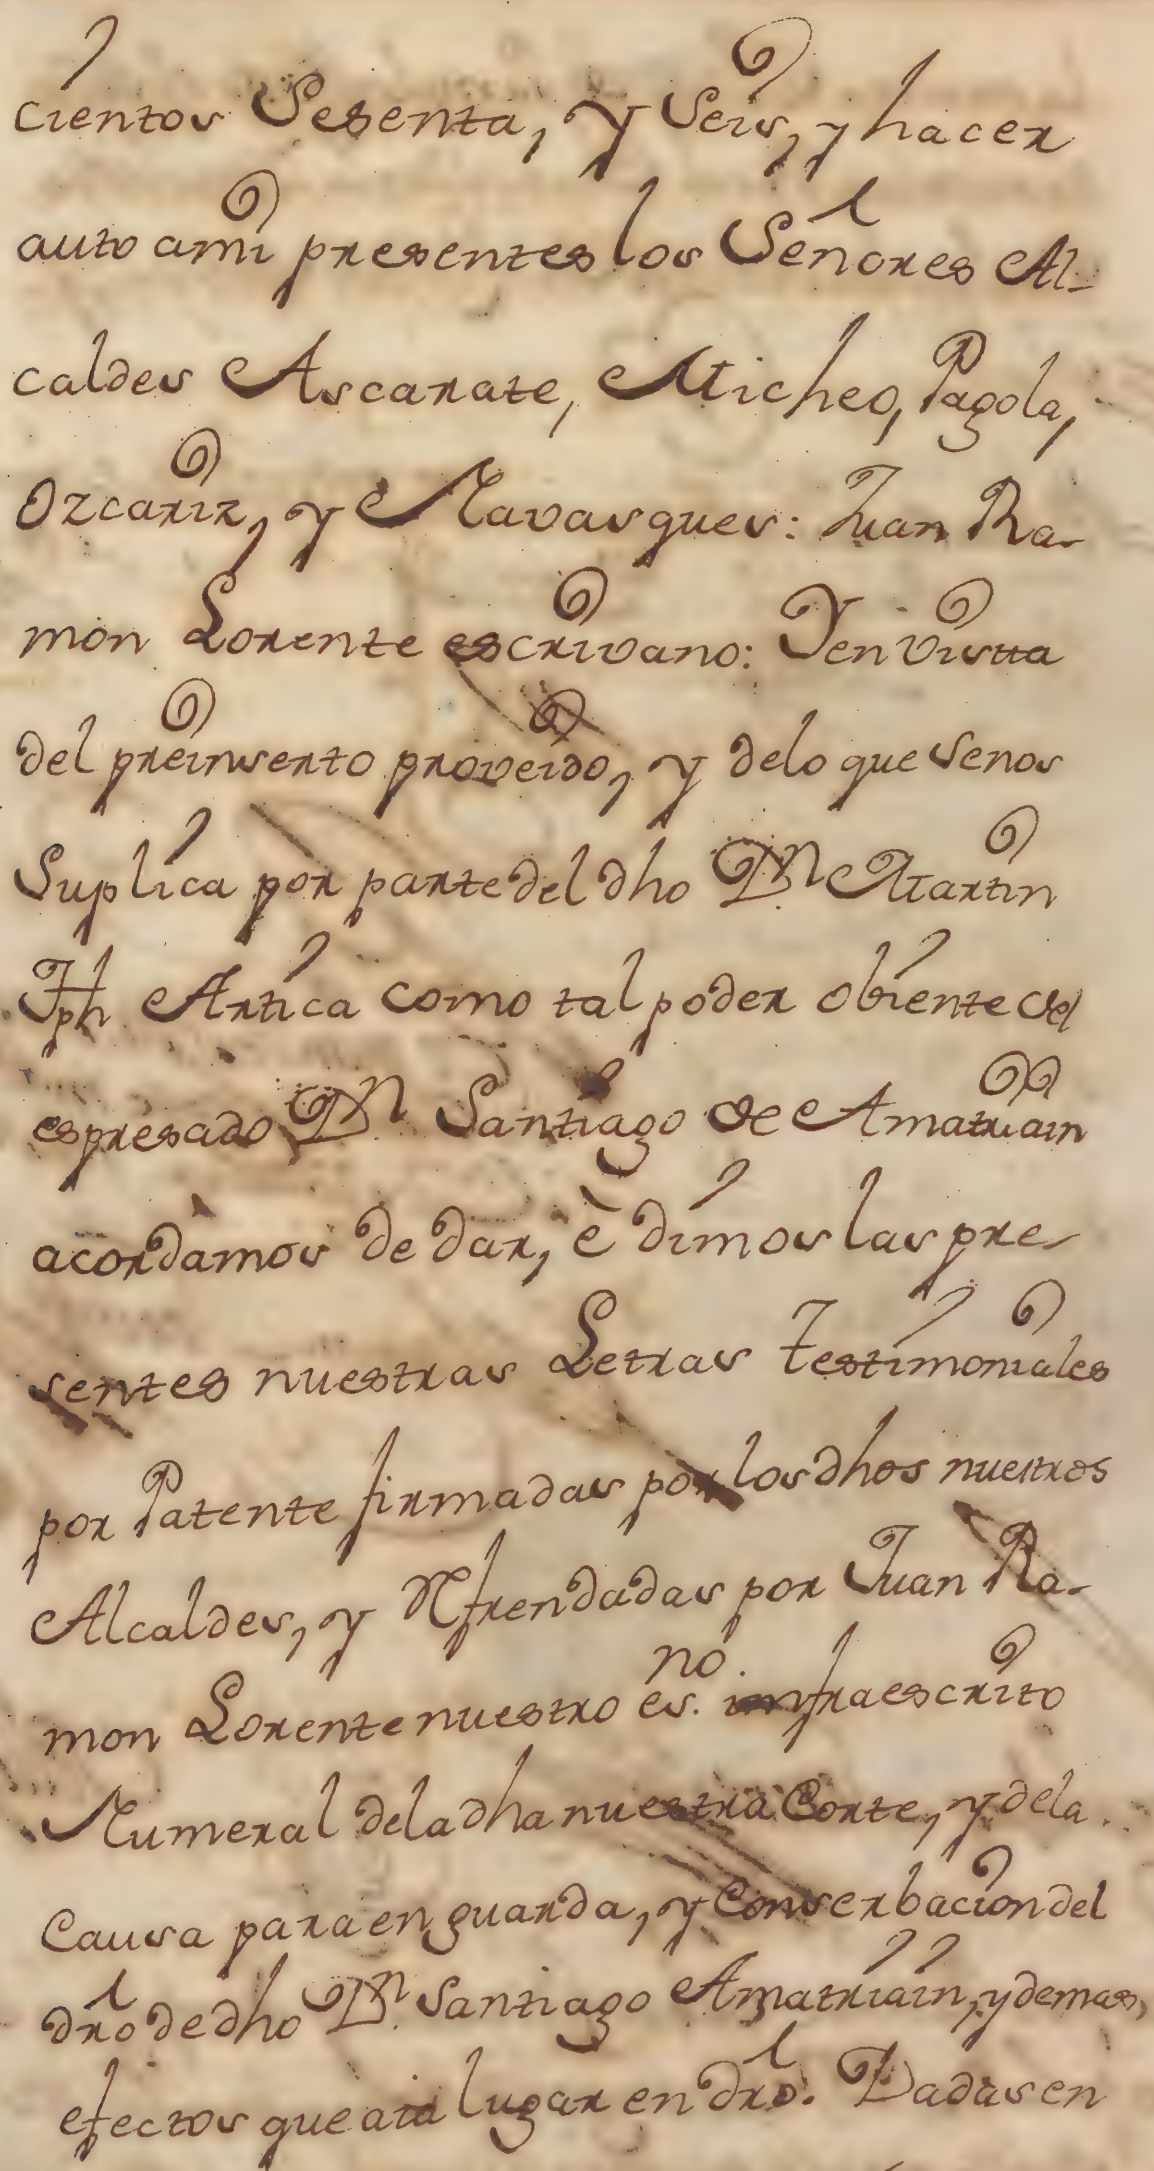 cientos Sesenta, y Seis, y hacer
auto ami presentes los Señores Al-
caldes Ascarate, Micheo, Pagola,
Ozcariz, y Navasques: Juan Ra-
mon Lorente escrivano: Yen vistta
del preinserto proveido, y delo que senos
Suplica por parte del dho Dn Martin
Jph Artica como tal poder obiente del
espresado Dn Santiago de Amatriain
acordamos de dar, è dimos las pre-
sentes nuestras Letras testimoniales
por Patente firmadas por los dhos nuestros
Alcaldes, y Rfrendadas por Juan Ra-
mon Lorente nuestro es.no infraescrito
Numeral dela dha nuestra Corte, y dela
Causa para en guarda, y Conserbacion del
dro de dho Dn Santiago Amatriain, y demas,
efectos que aia lugar en dro. Dadas en